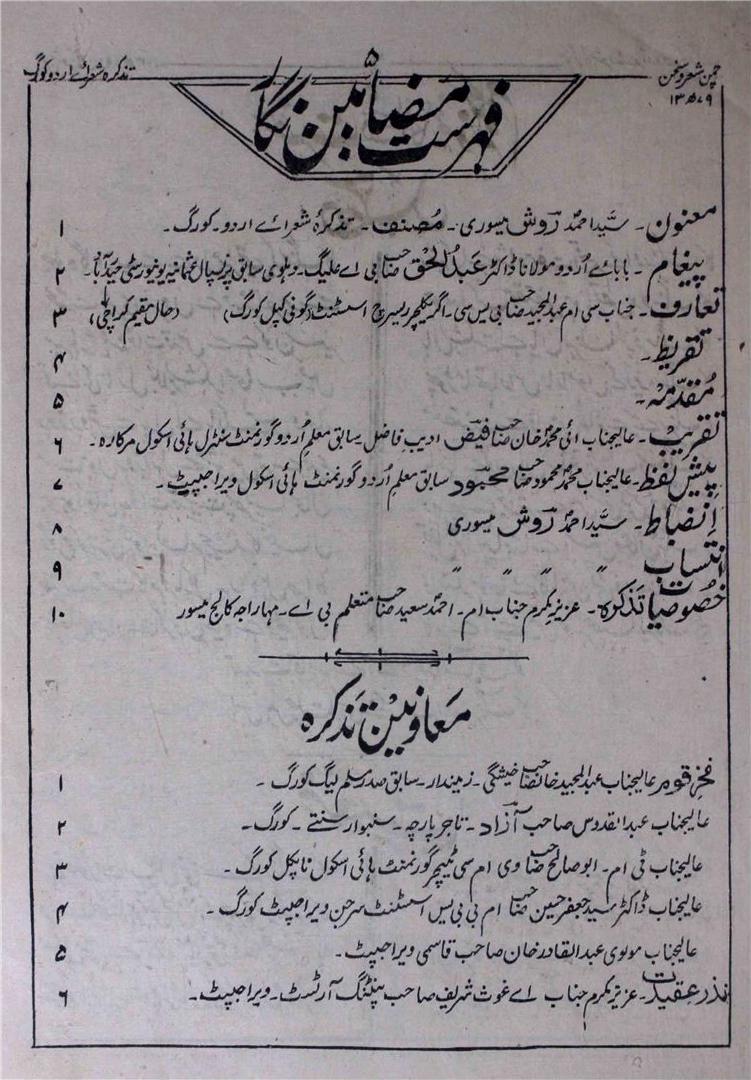 چمن شعر و سخن
۱۳۷۹ھ
۵
تذکرہ شعرائے اردو کورگ
فہرست مضامین نگار
معنون۔ سید احمد روشؔ میسوری۔ مصنف۔ تذکرۂ شعرائے اردو۔ کورگ۔ ۱
پیغام۔ بابائے اُردو مولانا ڈاکٹر عبدالحق صاحب بی اے علیگ۔ دہلوی سابق پرنسپال عثمانیہ یونیورسٹی حیدرآباد۔ ۲
تعارف۔ جناب سی ام عبدالمجید صاحب بی یس سی۔ اگریکلچر ریسرچ اسسٹنٹ (گونی کپل کورگ) (حال مقیم کراچی) ۳
تقریظ۔ ۴
مُقدّمہ۔ ۵
تقریب۔ عالیجناب ائی محمد خان صاحب فیضؔ ادیب فاضل۔ سابق معلم اُردو گورنمنٹ سنٹرل ہائی اسکول مرکارہ۔ ۶
پیش لفظ۔ عالیجناب محمد محمود صاحب محمودؔ سابق معلم اُردو گورنمنٹ ہائی اسکول ویراجپیٹ۔ ۷
اِنضباط۔ سیّد احمد روشؔ میسوری ۸
انتساب " " " " ۹
خصُوصیات تذکرہ۔ عزیز مکرم جناب ام۔ احمد سعید صاحب متعلم بی اے۔ مہاراجہ کالج میسور ۱۰
معاونین تذکرہ
فخرِ قوم عالیجناب عبدالمجید خان صاحب خیشگی۔ زمیندار۔ سابق صدر مسلم لیگ کورگ۔ ۱
عالیجناب عبدالقدوس صاحب آزادؔ۔ تاجر پارچہ۔ سنہوار سنتے۔ کورگ۔ ۲
عالیجناب ٹی ام۔ ابو صالح صاحب وی ام سی ٹیچر گورنمنٹ ہائی اسکول ناپکل کورگ۔ ۳
عالیجناب ڈاکٹر سید جعفر حسین صاحب ام بی بی یس اسسٹنٹ سرجن ویراجپیٹ کورگ۔ ۴
عالیجناب مولوی عبدالقادر خان صاحب قاسمی ویراجپیٹ۔ ۵
نذر عقیدت۔ عزیز مکرم جناب اے غوث شریف صاحب پنٹنگ آرٹسٹ۔ ویراجپیٹ۔ ۶